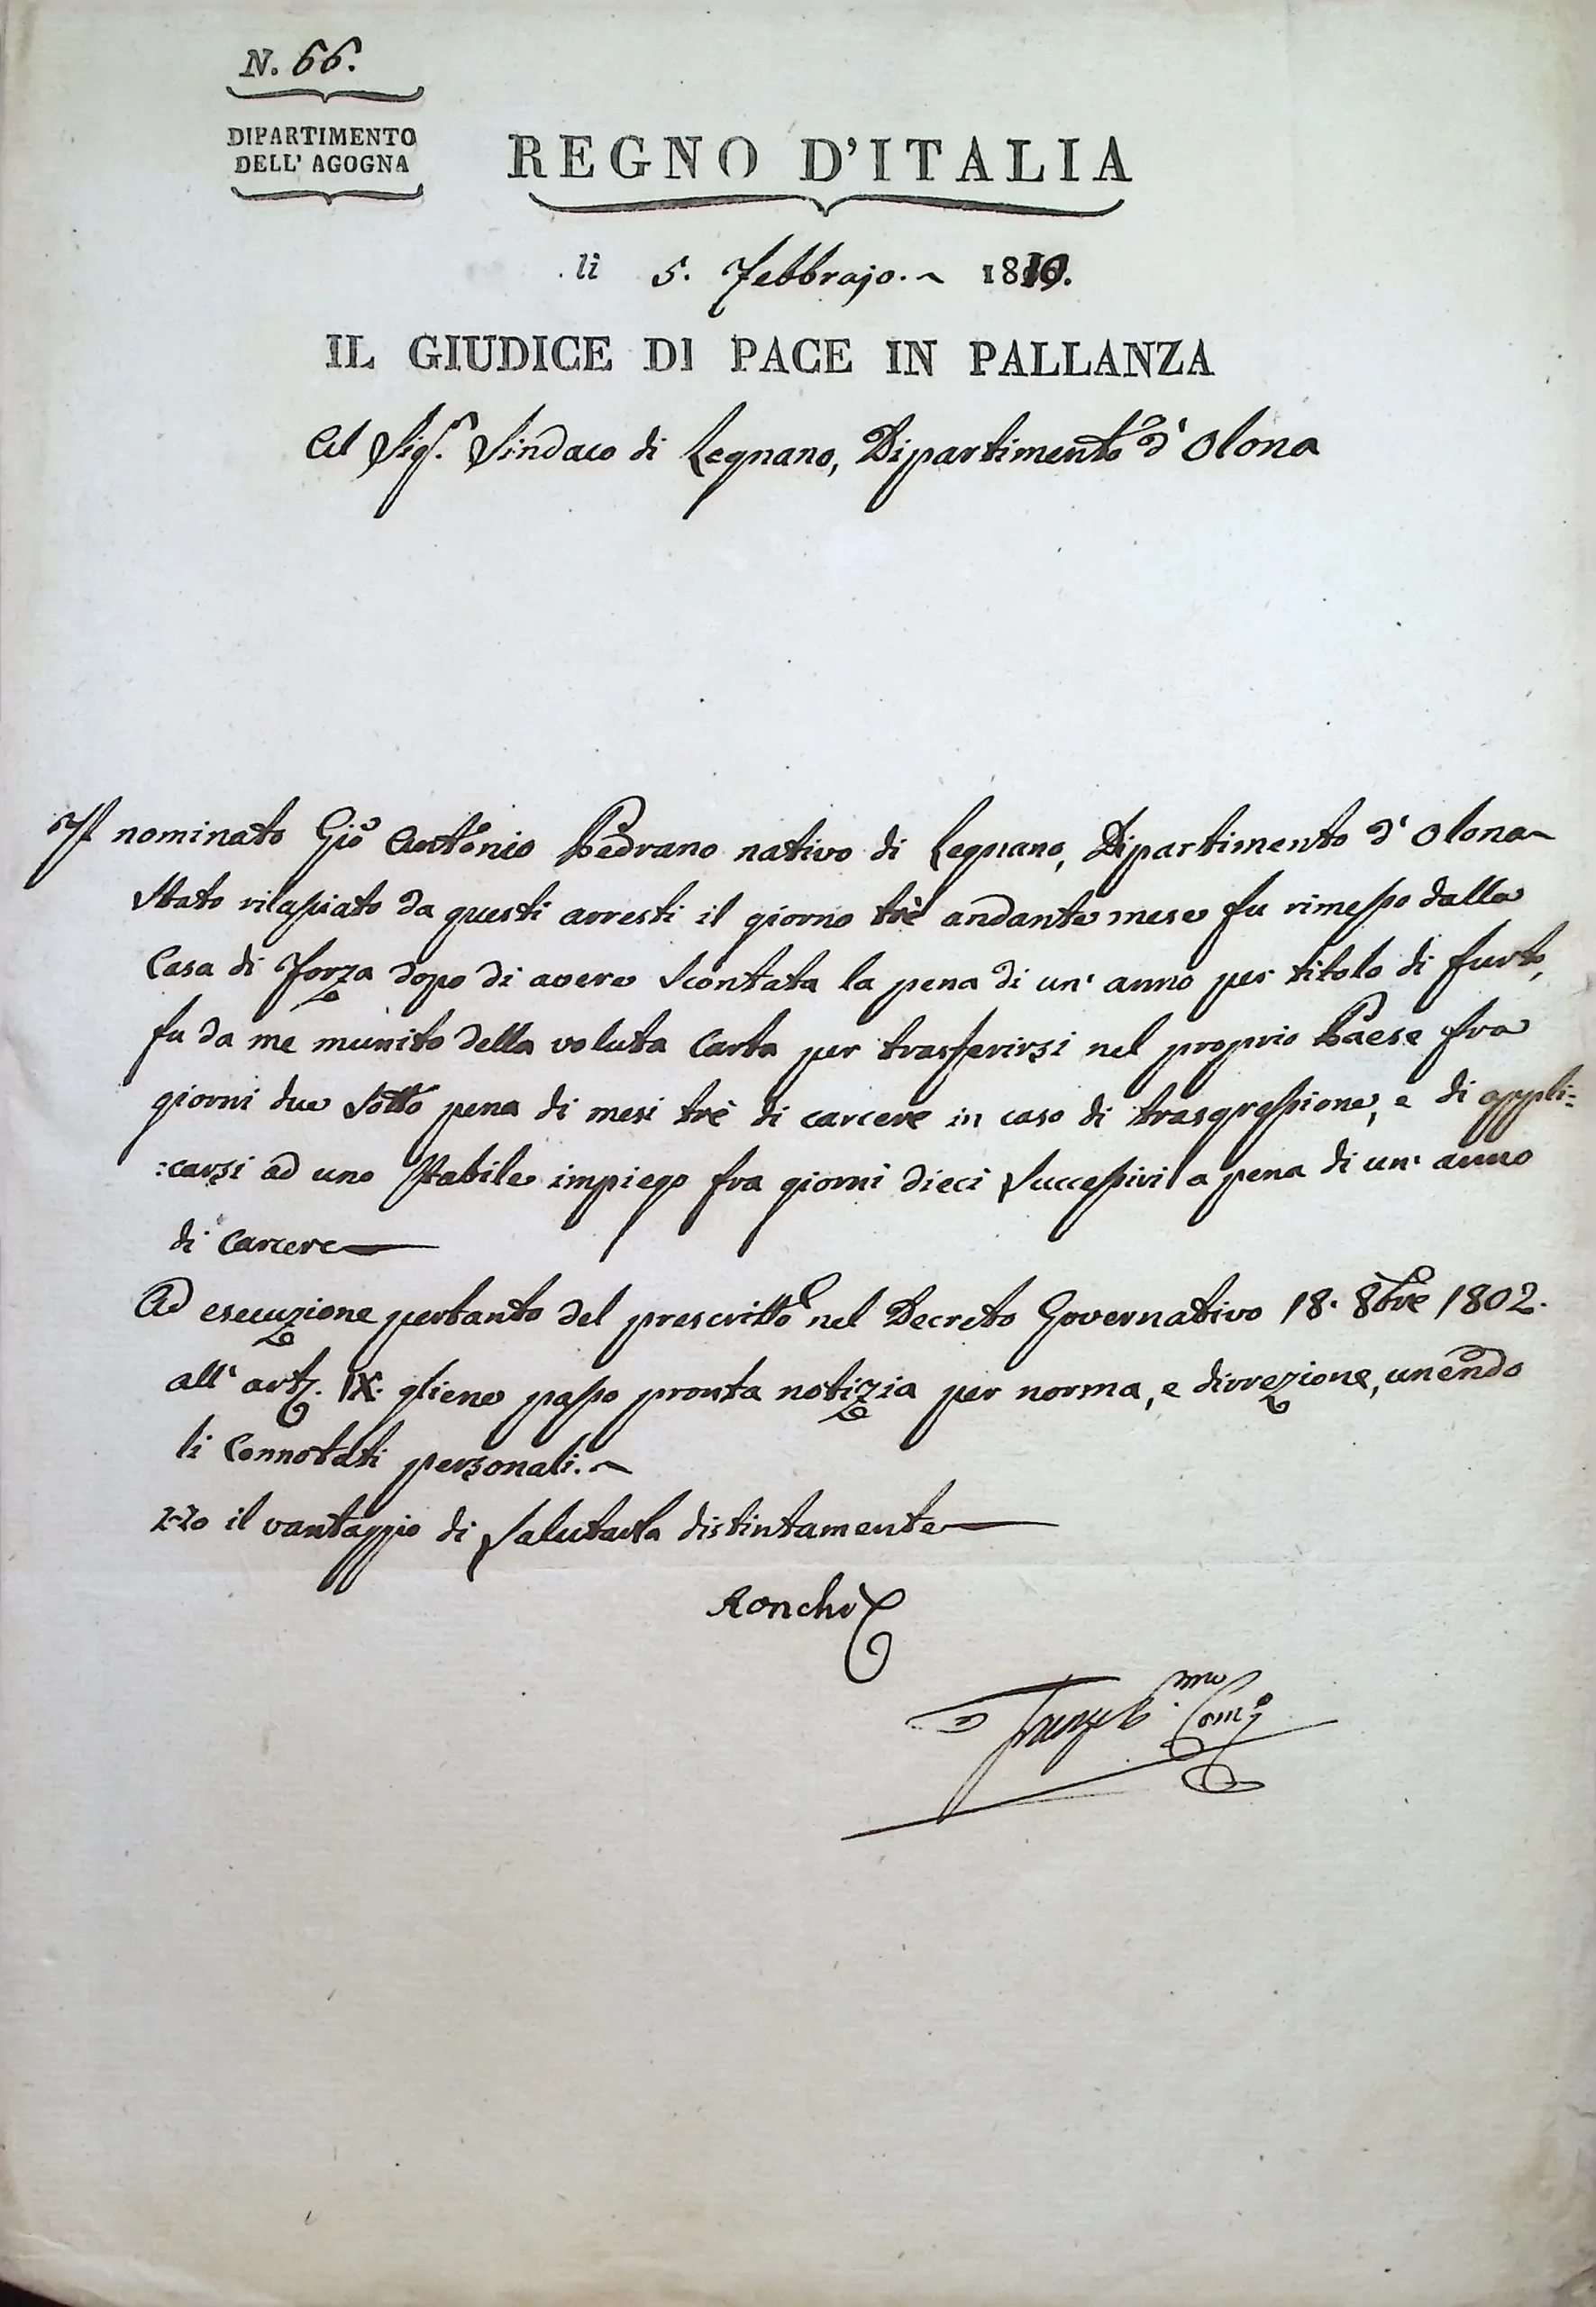 N. 66.
DIPARTIMENTO
DELL' AGOGNA
REGNO D'ITALIA
li 5. Febbrajo. 1810.
IL GIUDICE DI PACE IN PALLANZA
Al Sig.r Sindaco di Legnano, Dipartimento d'Olona
Il nominato Gio Antonio Pedrano nativo di Legnano, Dipartimento d'Olona
stato rilasciato da questi arresti il giorno trè andante mese fu rimesso dalla
Casa di Forza dopo di avere scontata la pena di un' anno per titolo di furto,
fu da me munito della voluta Carta per trasferirsi nel proprio Paese fra
giorni due sotto pena di mesi trè di carcere in caso di trasgressione, e di appli=
:carsi ad uno stabile impiego fra giorni dieci successivi a pena di un' anno
di Carcere
Ad esecuzione pertanto del prescritto nel Decreto Governativo 18. 8bre 1802.
all' art. IX. gliene passo pronta notizia per norma, e dirrezione, unendo
li Connotati personali.
Ho il vantaggio di salutarla distintamente
Ronchi